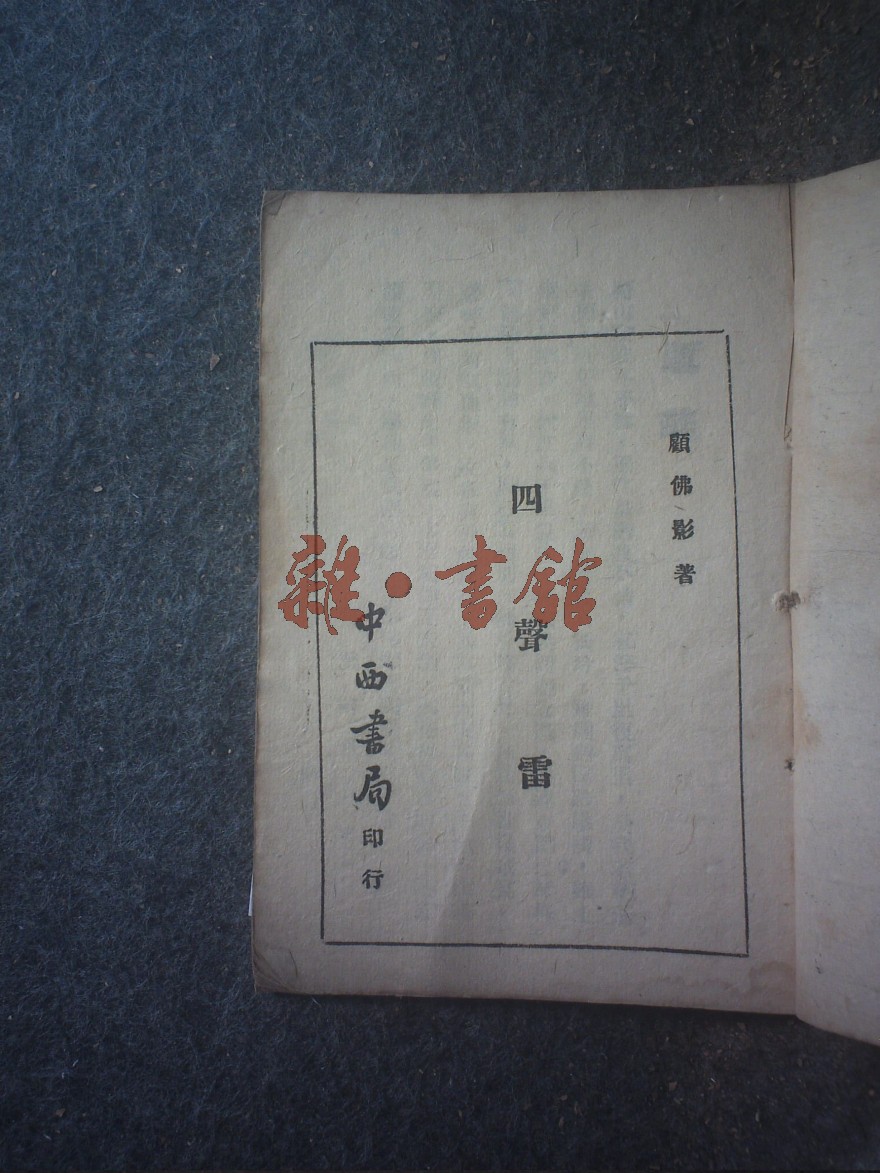 顧佛影著
四聲雷
中西書局印行
雜·書舘